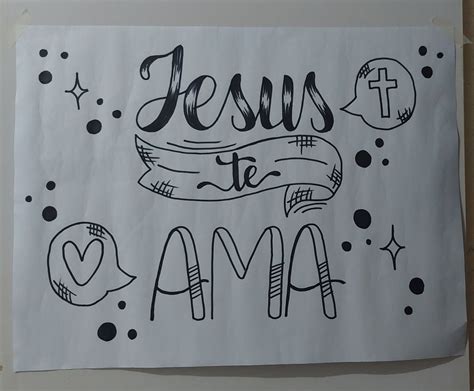 Jesus
te
AMA